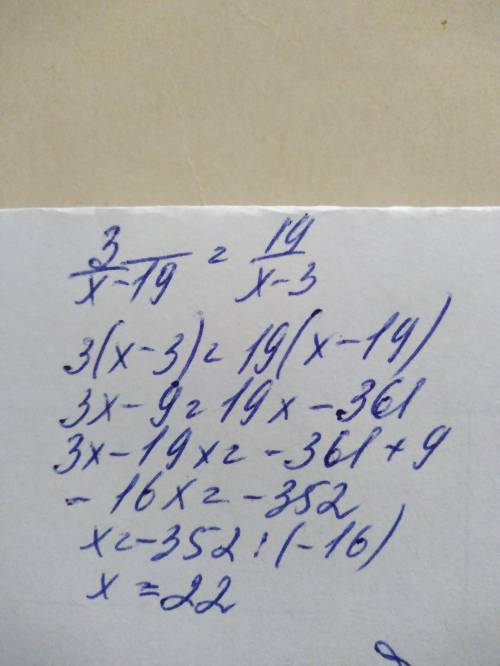 3/(x-19) = 19/(x-3)
3(x-3)=19(x-19)
3x-9=19x-361
3x-19x=-361+9
-16x=-352
x=-352:(-16)
x=22